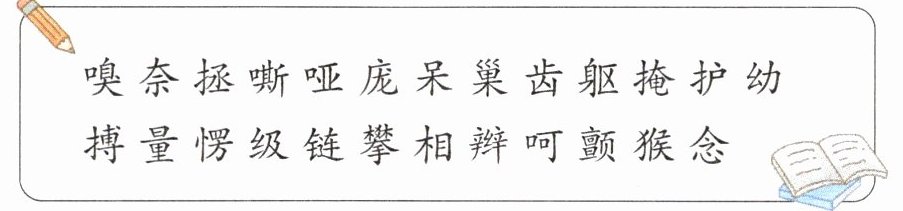 嗅 奈 拯 嘶 哑 庞 呆 巢 齿 躯 掩 护 幼
搏 量 愣 级 链 攀 相 辩 呵 颤 猴 念